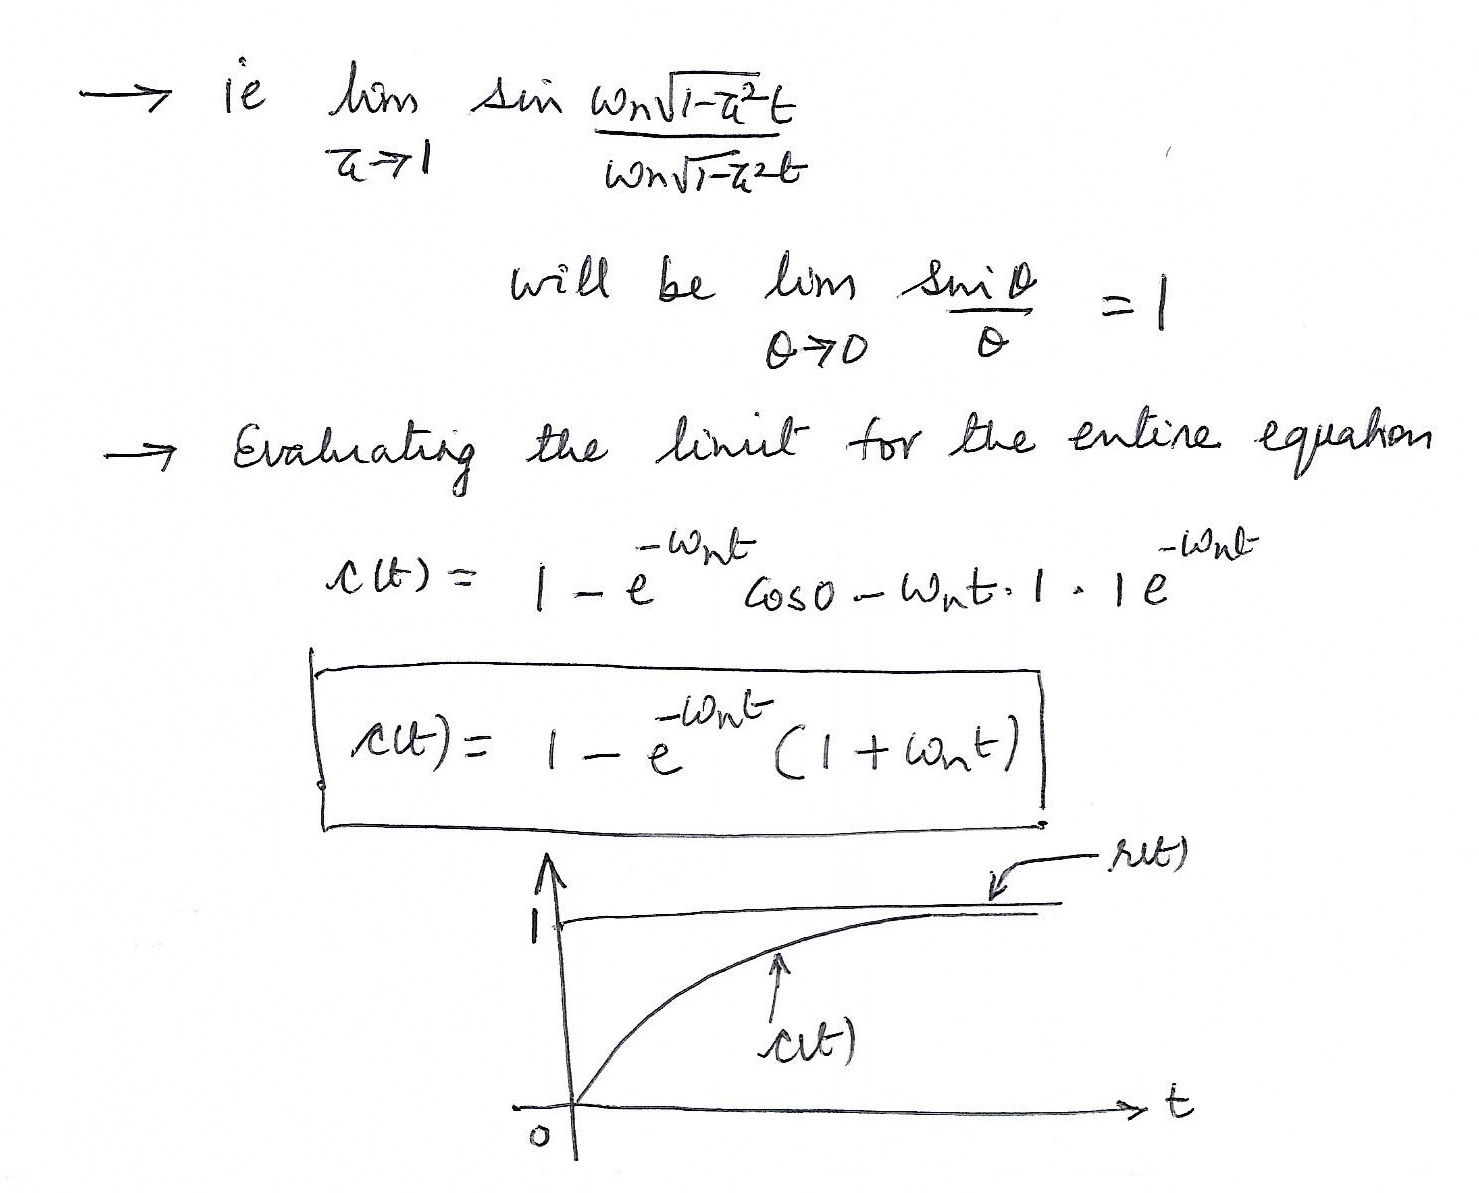 → ie lim sin ωn√1-ζ²t
ζ→1 ωn√1-ζ²t
will be lim sinθ = 1
θ→0 θ
→ Evaluating the limit for the entire equation
c(t) = 1 - e^-ωnt cos0 - ωnt. 1 . 1 e^-ωnt
c(t) = 1 - e^-ωnt (1 + ωnt)
r(t)
1
c(t)
t
0